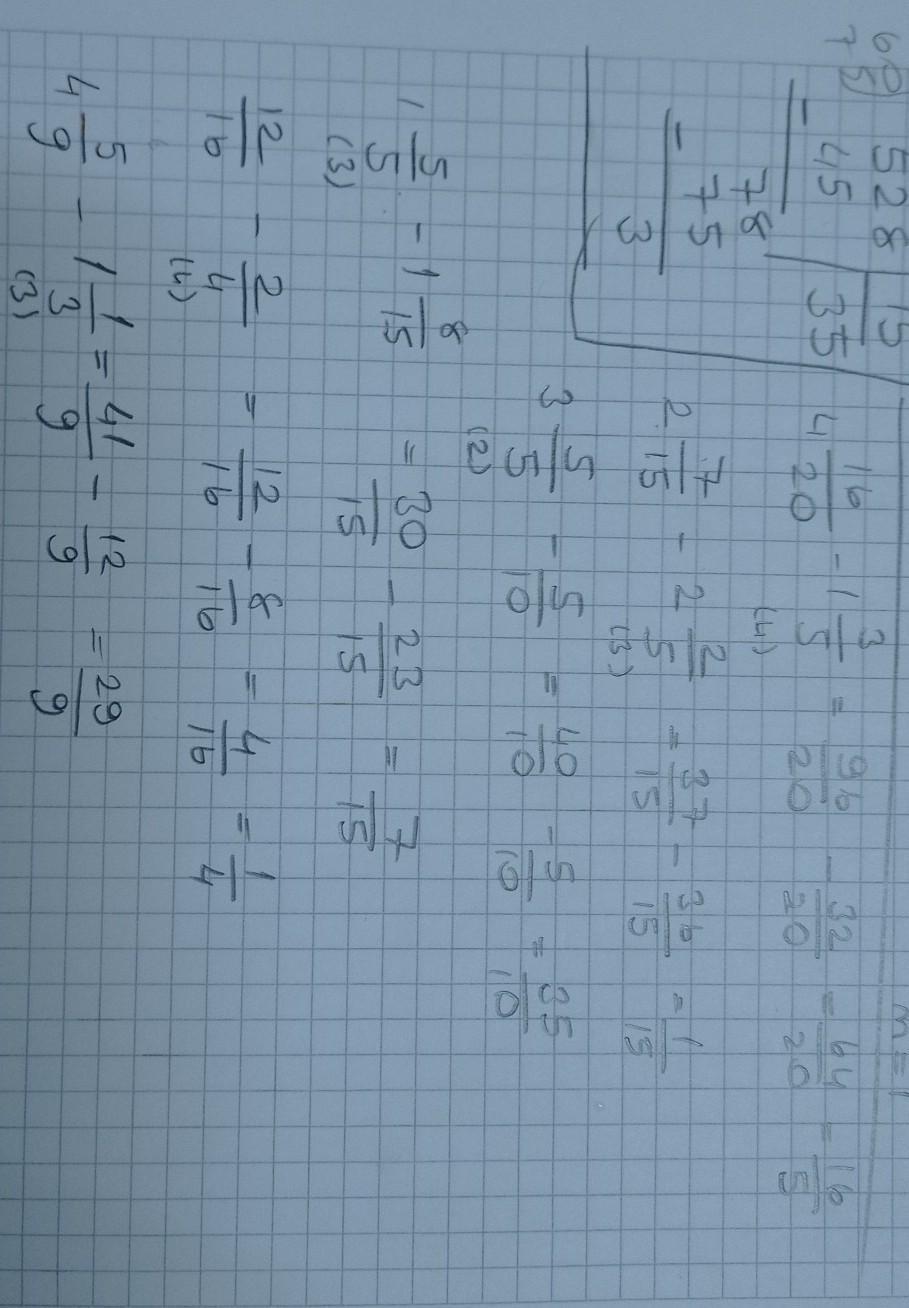 m = 1
60 528 | 15
75 - 45 35
78
- 75
3
4 16/20 - 1 3/5 (4) = 96/20 - 32/20 = 64/20 = 16/5
2 7/15 - 2 2/5 (3) = 37/15 - 36/15 = 1/15
3 5/5 (2) - 5/10 = 40/10 - 5/10 = 35/10
1 5/5 (3) - 1 8/15 = 30/15 - 23/15 = 7/15
12/16 - 2/4 (4) = 12/16 - 8/16 = 4/16 = 1/4
4 5/9 - 1 1/3 (3) = 41/9 - 12/9 = 29/9